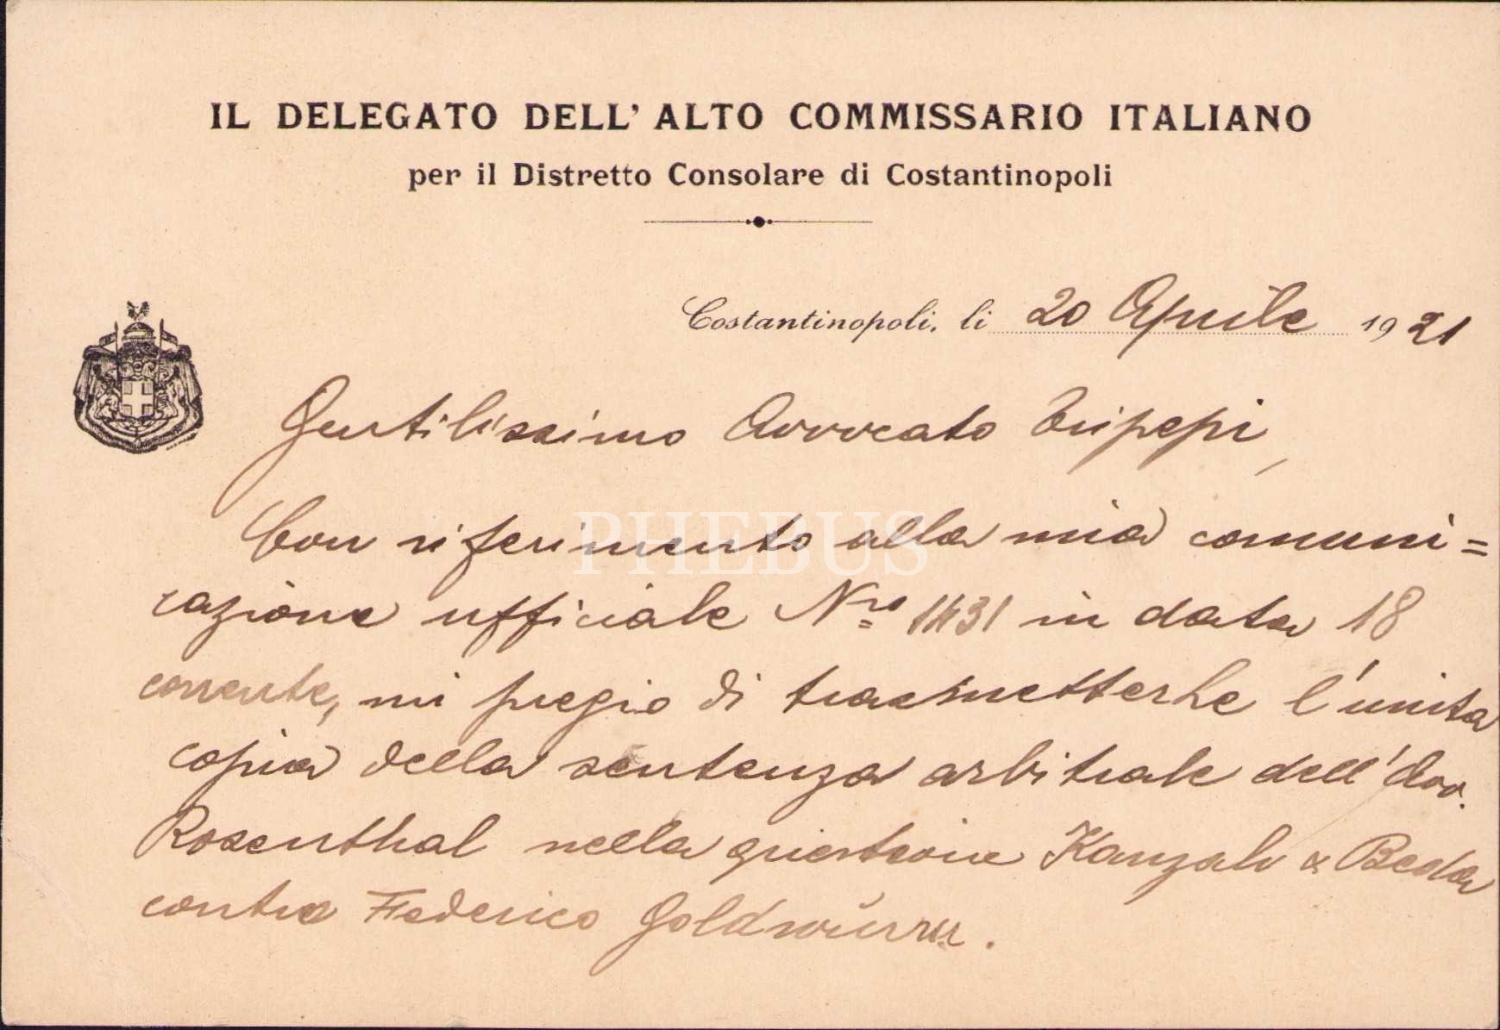 IL DELEGATO DELL' ALTO COMMISSARIO ITALIANO
per il Distretto Consolare di Costantinopoli
Costantinopoli, li 20 Aprile 1921
Gentilissimo Avvocato Tripepi,
Con riferimento alla mia comuni=
cazione ufficiale Nro 1431 in data 18
corrente, mi pregio di trasmetterLe l'unita
copia della sentenza arbitrale dell'Avv.
Rosenthal nella questione & Beda
contro Federico
PHEBUS